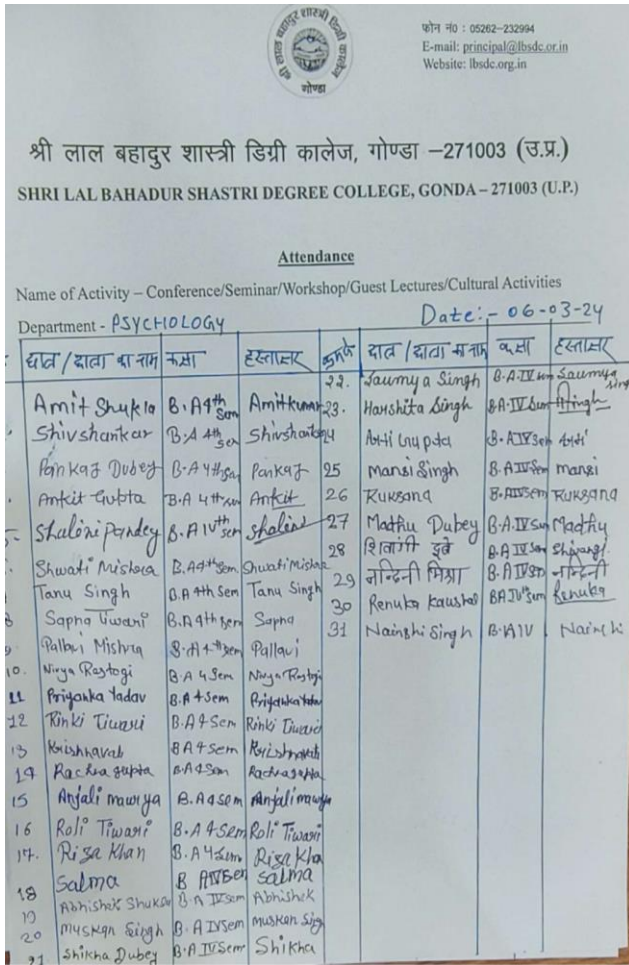 श्री लाल बहादुर शास्त्री डिग्री कालेज
गोण्डा
फोन नं0 : 05262-232994
E-mail: principal@lbsdc.or.in
Website: lbsdc.org.in
श्री लाल बहादुर शास्त्री डिग्री कालेज, गोण्डा –271003 (उ.प्र.)
SHRI LAL BAHADUR SHASTRI DEGREE COLLEGE, GONDA – 271003 (U.P.)
Attendance
Name of Activity – Conference/Seminar/Workshop/Guest Lectures/Cultural Activities
Department - PSYCHOLOGY Date:- 06-03-24
छात्र / छात्रा का नाम कक्षा हस्ताक्षर
Amit Shukla B.A 4th Sem Amitkumar
Shivshankar B.A 4th Sem Shivshankar
Pankaj Dubey B.A 4th Sem Pankaj
Ankit Gupta B.A 4th Sem Ankit
Shalini Pandey B.A IVth Sem Shalini
Shwati Mishra B.A 4th Sem Shwati Mishra
Tanu Singh B.A 4th Sem Tanu Singh
Sapna Tiwari B.A 4th Sem Sapna
Pallavi Mishra B.A 4th Sem Pallavi
10. Nivya Rastogi B.A 4 Sem Nivya Rastogi
11 Priyanka Yadav B.A 4 Sem Priyanka Yadav
12 Rinki Tiwari B.A 4 Sem Rinki Tiwari
13 Krishnavati B.A 4 Sem Krishnavati
14 Rachna gupta B.A 4 Sem Rachna gupta
15 Anjali maurya B.A 4 Sem Anjali maurya
16 Roli Tiwari B.A 4 Sem Roli Tiwari
17. Risa Khan B.A 4 Sem Risa Kha
18 Salma B A IV Sem Salma
19 Abhishek Shukla B.A IV Sem Abhishek
20 Muskan Singh B.A IV Sem Muskan Singh
21 Shikha Dubey B.A IV Sem Shikha
क्रमांक छात्र / छात्रा का नाम कक्षा हस्ताक्षर
22. Saumya Singh B.A. IV Sem Saumya Singh
23. Harshita Singh B.A. IV Sem
24 Arti Gupta B.A IV Sem
25 Mansi Singh B.A IV Sem mansi
26 Ruksana B.A IV Sem Ruksana
27 Madhu Dubey B.A. IV Sem Madhu
28 शिवांगी दुबे B.A IV Sem Shivangi
29 नन्दिनी मिश्रा B.A IV Sem नन्दिनी
30 Renuka Kaushal BA IVth Sem Renuka
31 Nainshi Singh B.A IV Nainshi